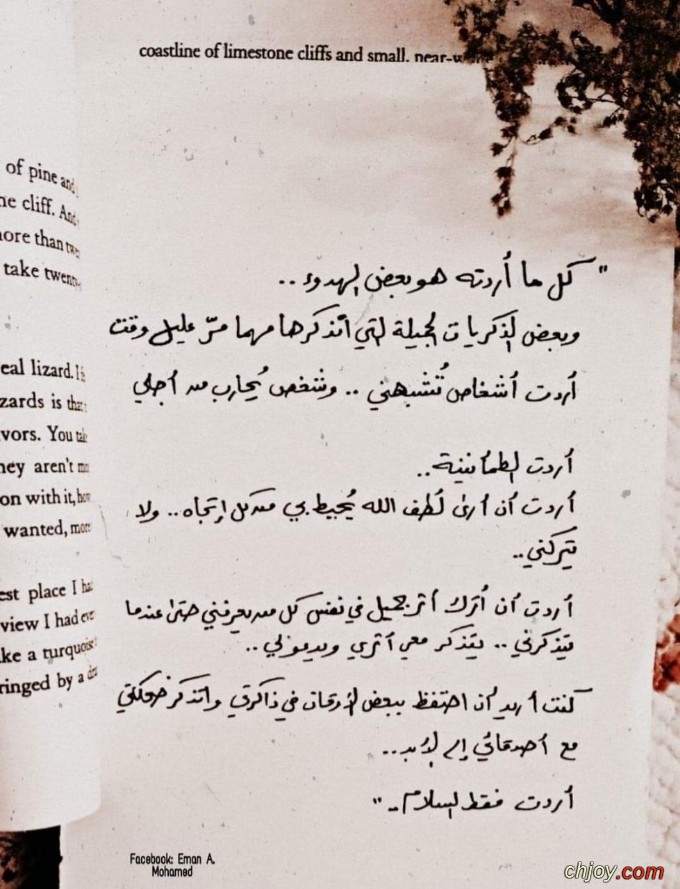 coastline of limestone cliffs and small, near-w
of pine and
ne cliff. And
nore than tw
take twenty-
eal lizard. I
zards is tha
vors. You tak
hey aren't m
on with it, ho
wanted, more
est place I ha
view I had eve
ke a turquoise
ringed by a
" كل ما أردته هو بعض الهدوء ..
وبعض الذكريات الجميلة التي أتذكرها مهما مرّ عليها وقت
أردت أشخاص تُشبهني .. وشخص يُحارب من أجلي
أردت الطمأنينة ..
أردت أن أرى لُطف الله يُحيط بي من كل إتجاه .. ولا
يتركني ..
أردت أن أترك أثر جميل في نفس كل من يعرفني حتى عندما
يتذكرني .. يتذكر معي أثري ويدعولي ..
كنت أريد أن احتفظ ببعض الأوقات في ذاكرتي واتذكر ضحكتي
مع أصدقائي إلى الأبد ..
أردت فقط السلام .. "
Facebook: Eman A.
Mohamed
chjoy.com